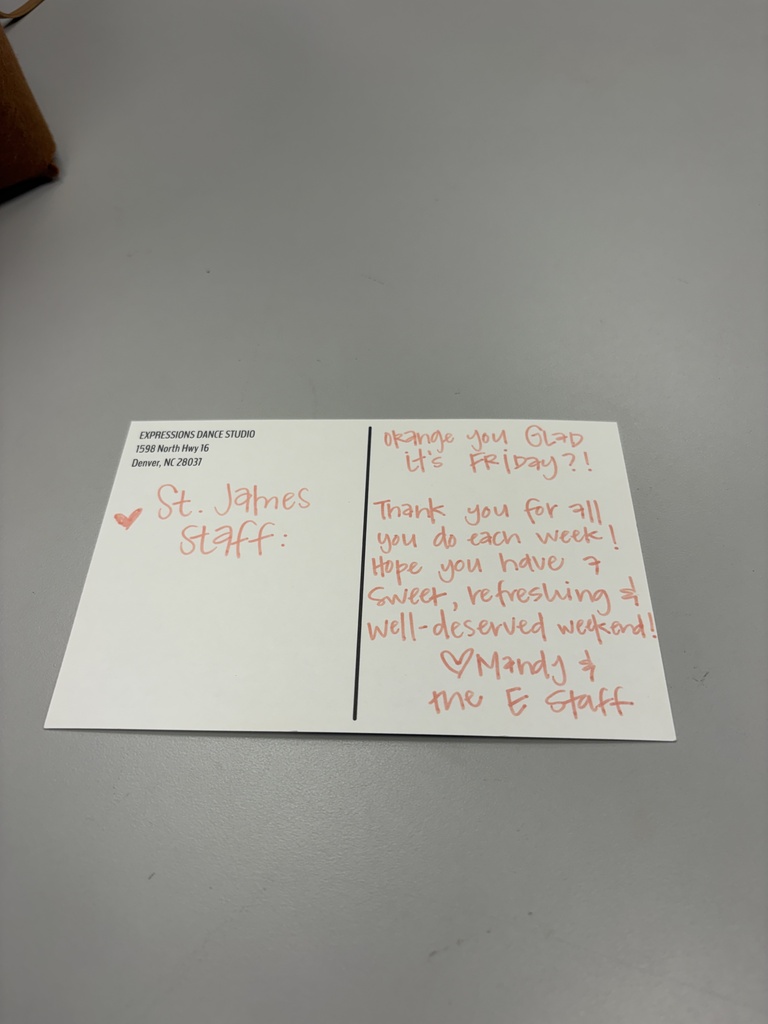 EXPRESSIONS DANCE STUDIO
1598 North Hwy 16
Denver, NC 28037
St. James
Staff:
Orange you GLAD
it's FRIDAY?!
Thank you for all
you do each week!
Hope you have a
sweet, refreshing &
well-deserved weekend!
♡Mandy &
the E Staff